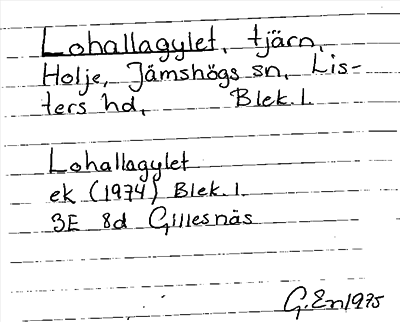 Lohallagylet, tjärn,
Holje, Jämshögs sn, Lis-
ters hd, Blek. l.
Lohallagylet
ek (1974) Blek. l.
3E 8d Gillesnäs
G. En 1975